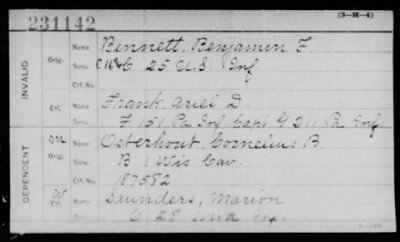 231142
(3—H—4)
INVALID
Orig.
Name Bennett, Benjamin F.
Serv. C 25 U.S. Inf
Ctf. No.
Ctf.
Name Frank, Ariel D
Serv. F 151 Pa Inf Capt G 211 Pa Inf.
DEPENDENT
Orig.
Name Osterhout, Cornelius B
Serv. B 1 Wis Cav.
Ctf. No. 187582
W
Ctf.
Name Saunders, Marion
C 28 Iowa Inf.